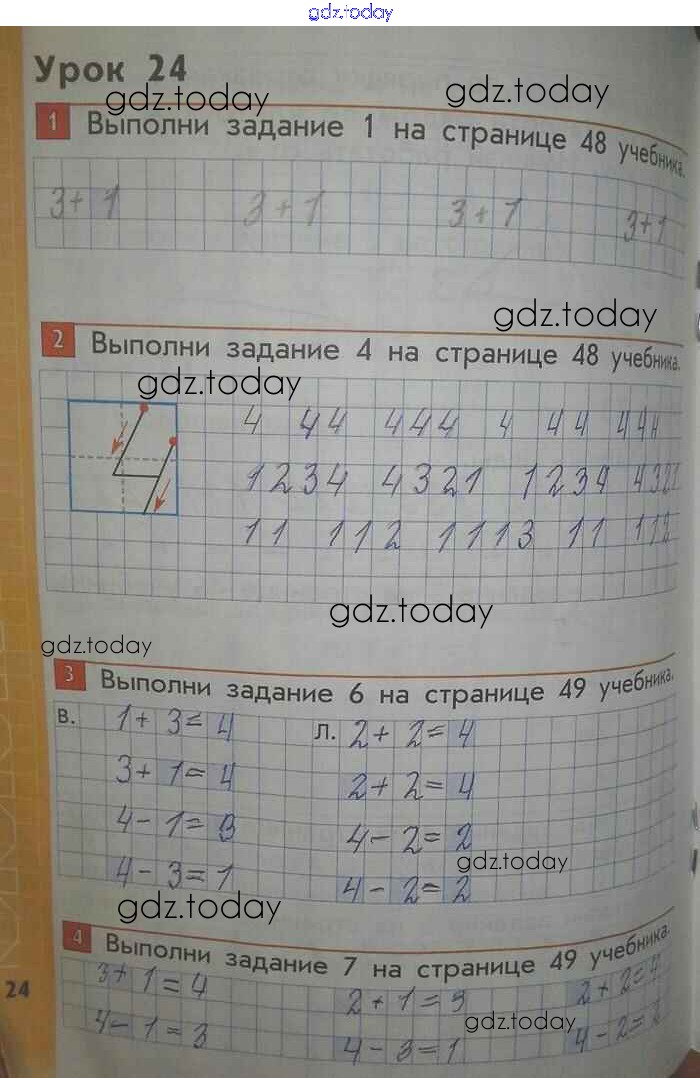 gdz.today
Урок 24
gdz.today gdz.today
1 Выполни задание 1 на странице 48 учебника.
3+1 3+1 3+1 3+1
gdz.today
2 Выполни задание 4 на странице 48 учебника.
gdz.today
4 44 444 4 44 444
1234 4321 1234 4321
11 112 1113 11 112
gdz.today
gdz.today
3 Выполни задание 6 на странице 49 учебника.
В. 1+3=4 Л. 2+2=4
3+1=4 2+2=4
4-1=3 4-2=2
gdz.today
4-3=1 4-2=2
gdz.today
4 Выполни задание 7 на странице 49 учебника.
3+1=4 2+1=3 2+2=4
gdz.today
4-1=3 4-3=1 4-2=2
24